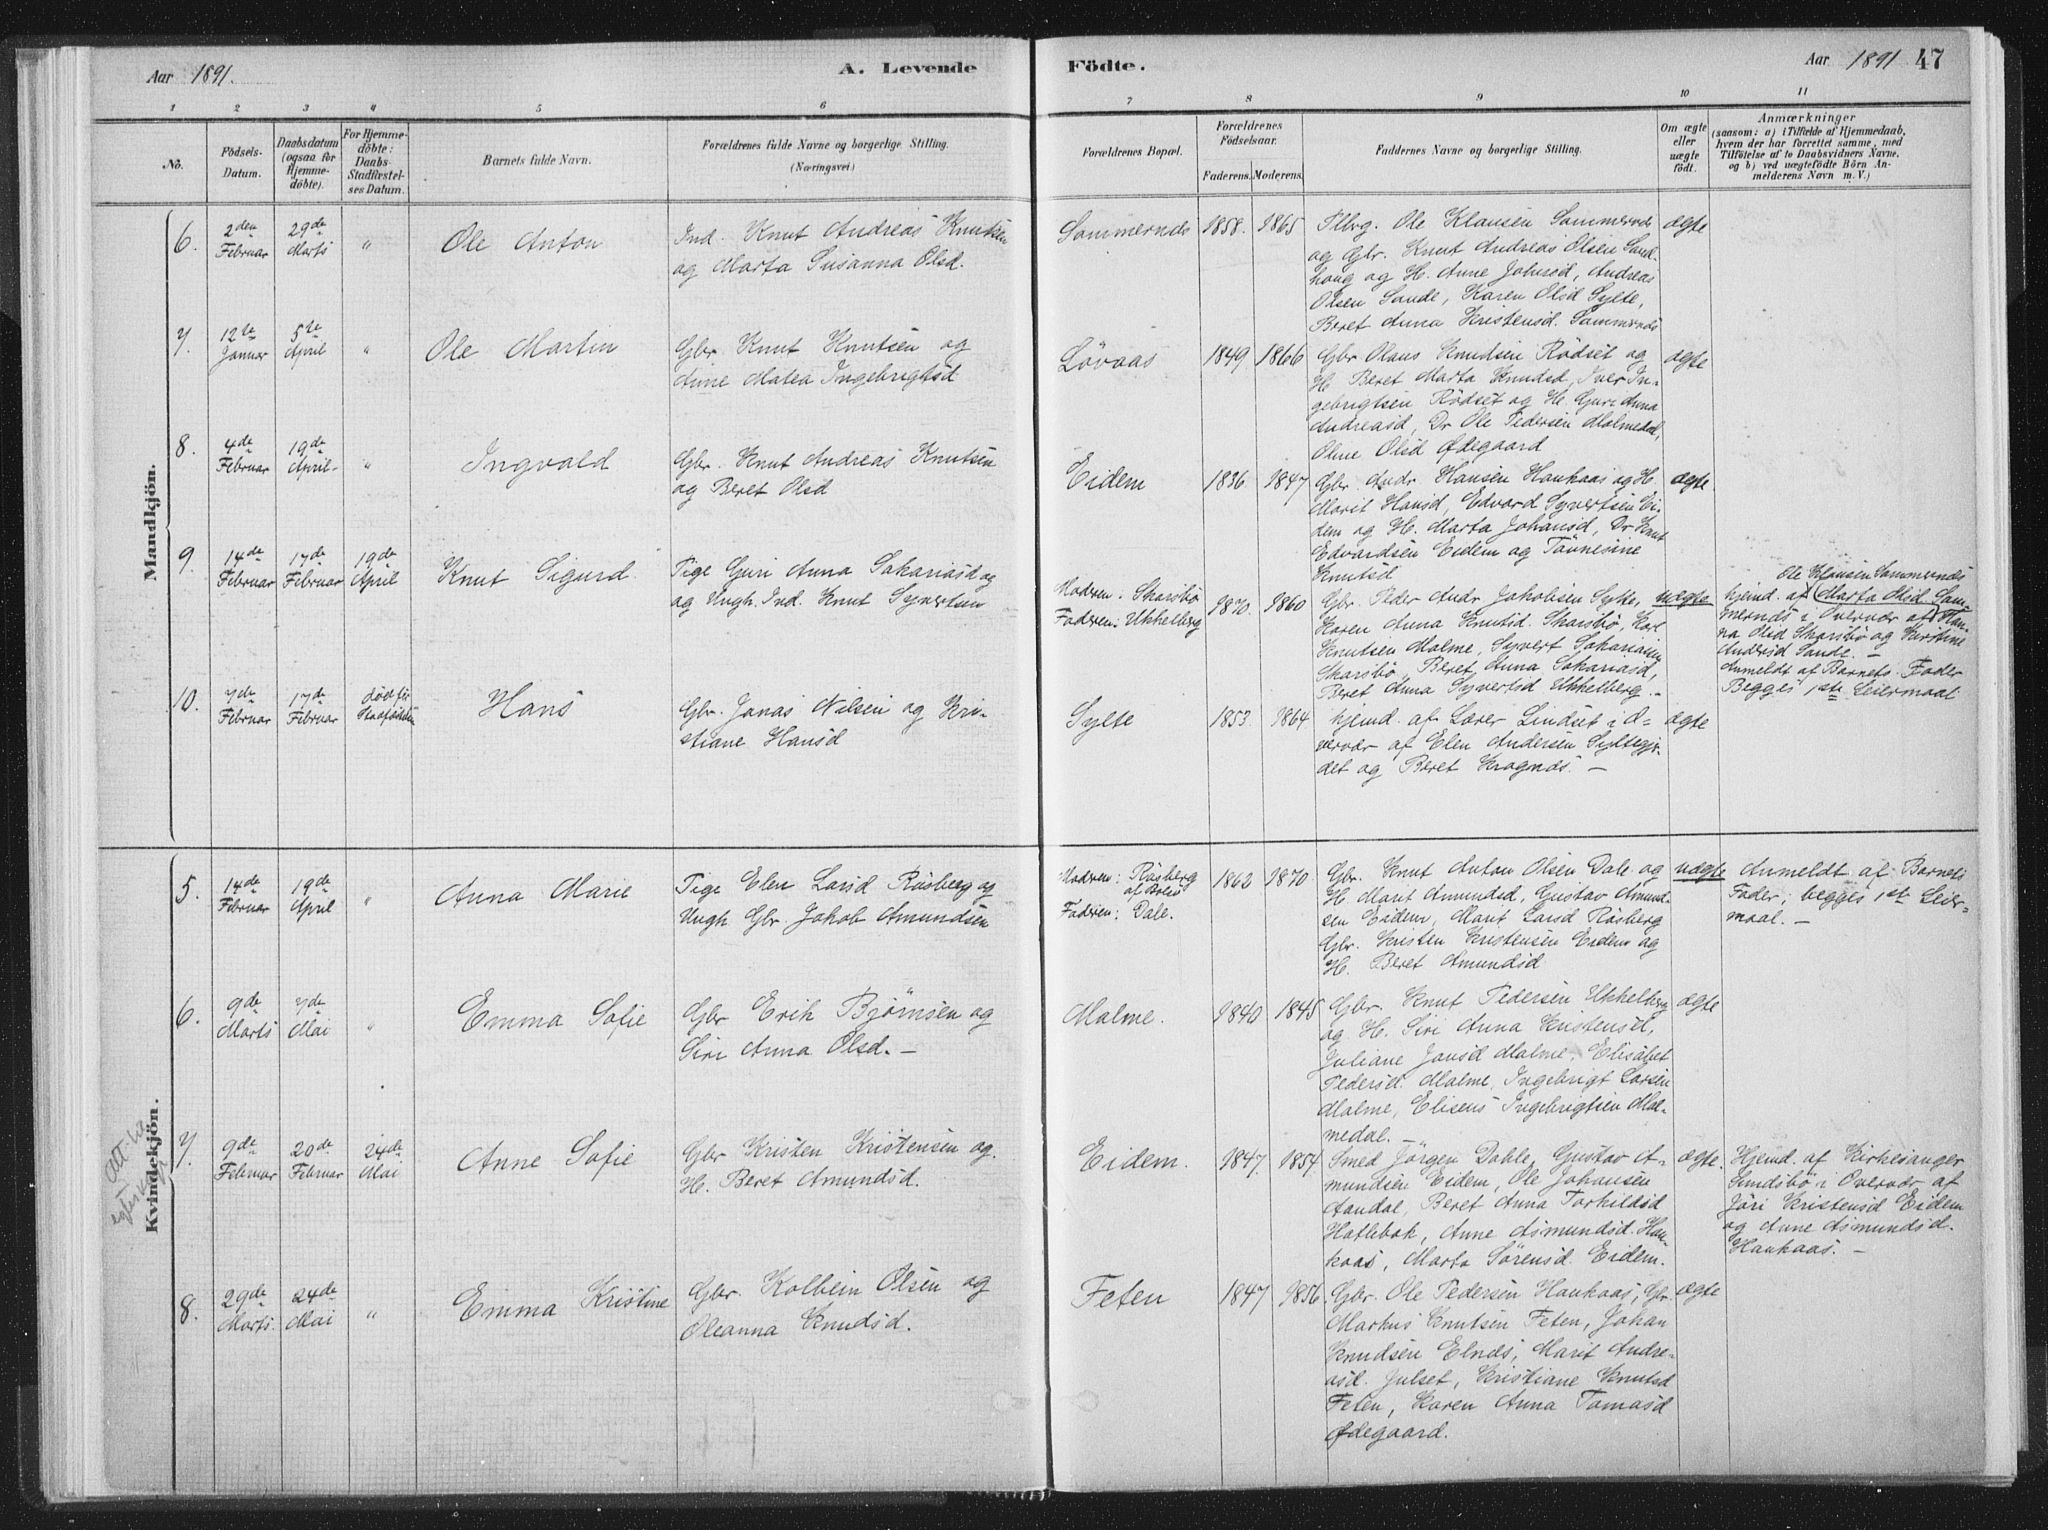 Aar 1891.
A. Levende
Födte.
Aar 1891 47
1 2 3 4 5 6 7 8 9 10 11
No.
Födsels-
Datum.
Daabsdatum
(ogsaa for
Hjemme-
döbte).
For Hjemme-
döbte:
Daabs-
Stadfæstel-
ses Datum.
Barnets fulde Navn.
Forældrenes fulde Navne og borgerlige Stilling.
(Næringsvei.)
Forældrenes Bopæl.
Forældrenes
Födselsaar.
Faderens. Moderens.
Faddernes Navne og borgerlige Stilling.
Om ægte
eller
uægte
födt.
Anmærkninger
(saasom: a) i Tilfælde af Hjemmedaab,
hvem der har forrettet samme, med
Tilföielse af to Daabsvidners Navne,
og b) ved uægtefödte Börn An-
melderens Navn m. V.)
Mandkjön.
6.
2den
Februar
29de
Marts
"
Ole Anton
Ind. Knut Andreas Knutsen
og Marta Susanna Olsd.
Sommernes
1858. 1865
Flbrg. Ole Klausen Sommernes
og Gbr. Knut Andreas Olsen Sand-
houg og H. Anne Johnsd, Andreas
Olsen Sande, Karen Olsd Sylte,
Beret Anna Kristensd. Sommernes
ægte
7.
12te
Januar
5te
April
"
Ole Martin
Gbr Knut Knutsen og
Anne Matea Ingebrigtsd
Løvaas
1849 1866
Gbr Olaus Knudsen Rödset og
H. Beret Marta Knudsd, Iver In-
gebrigtsen Rödset og H. Guri Anna
Andreasd, Dr Ole Pedersen Malmedal,
Oline Olsd Ødegaard
ægte
8.
4de
Februar
19de
April
"
Ingvald
Gbr. Knut Andreas Knutsen
og Beret Olsd
Eidem
1836 1847
Gbr. Andr Hansen Haukaas og H.
Marit Hansd, Edvard Syvertsen Ei-
dem og H. Marta Johansd, Dr Knut
Edvardsen Eidem og Tönnesine
Knutsd
ægte
9.
14de
Februar
17de
Februar
19de
April
Knut Sigurd
Pige Guri Anna Sakariasd og
og Ungk. Ind. Knut Syvertsen
Moderen: Skarsbö
Faderen: Ukkelberg
1870. 1860
Gbr. Peder Andr Jakobsen Sylte,
Karen Anna Knutsd. Skarsbö, Karl
Knutsen Malme, Syvert Sakariasen
Skarsbö, Beret Anna Sakariasd,
Beret Anna Syvertsd Ukkelberg. -
uægte
Ole Klausen Sommernes
hjemd. af Marta Olsd Som-
mernes i Overvær af Han-
na Olsd Skarsbö og Kirstine
Andersd Sande. -
Anmeldt af Barnets Fader
Begges 1ste Leiermaal
10.
7de
Februar
17de
Februar
död før
Stadfæstelsen
Hans
Gbr. Jonas Nilsen og Kri-
stiane Hansd
Sylte
1853. 1864
hjemd. af Lærer Lindset i O-
vervær af Elen Andersen Syltegjer-
det og Beret Kragnes. -
ægte
Kvindekjön.
5.
14de
Februar
19de
April
"
Anna Marie
Pige Elen Larsd Rösberg og
Ungk Gbr. Jakob Amundsen
Moderen: Rösberg
Faderen: Dale.
1862 1870
Gbr. Knut Anton Olsen Dale og
H Marit Amundsd, Gustav Amund-
sen Eidem, Marit Larsd Rösberg
Gbr. Kristen Kristensen Eidem og
H. Beret Amundsd
uægte
Anmeldt af Barnets
Fader; begges 1ste Leier-
maal. -
6.
9de
Marts
7de
Mai
"
Emma Sofie
Gbr Erik Bjørnsen og
Siri Anna Olsd. -
Malme.
1840 1845
Gbr. Knut Pedersen Ukkelberg
og H. Siri Anna Kristensd,
Juliane Jansd Malme, Elisabet
Pedersd. Malme, Ingebrigt Larsen
Malme, Eliseus Ingebrigtsen Mal-
medal. -
ægte
7.
9de
Februar
20de
Februar
24de
Mai
Anne Sofie
Gbr Kristen Kristensen og
H. Beret Amundsd.
Eidem.
1847. 1854
Smed Jörgen Dahle, Gustav A-
mundsen Eidem, Ole Johansen
Aandal, Beret Anna Torkildsd
Hatlebak, Anne Asmundsd Hau-
kaas, Marta Sörensd. Eidem.
ægte.
Hjemd. af Kirkesanger
Sundsbö i Overvær af
Jöri Kristensd Eidem
og Anne Asmundsd.
Haukaas. -
8.
29de
Marts.
24de
Mai
"
Emma Kristine
Gbr. Kolbein Olsen og
Oleanna Knudsd.
Feten
1847 1856.
Gbr. Ole Pedersen Haukaas, Gbr.
Markus Knutsen Feten, Johan
Knudsen Elnes, Marit Andre-
asd. Julset, Kristiane Knutsd
Feten, Karen Anna Tomasd
Ødegaard.
ægte